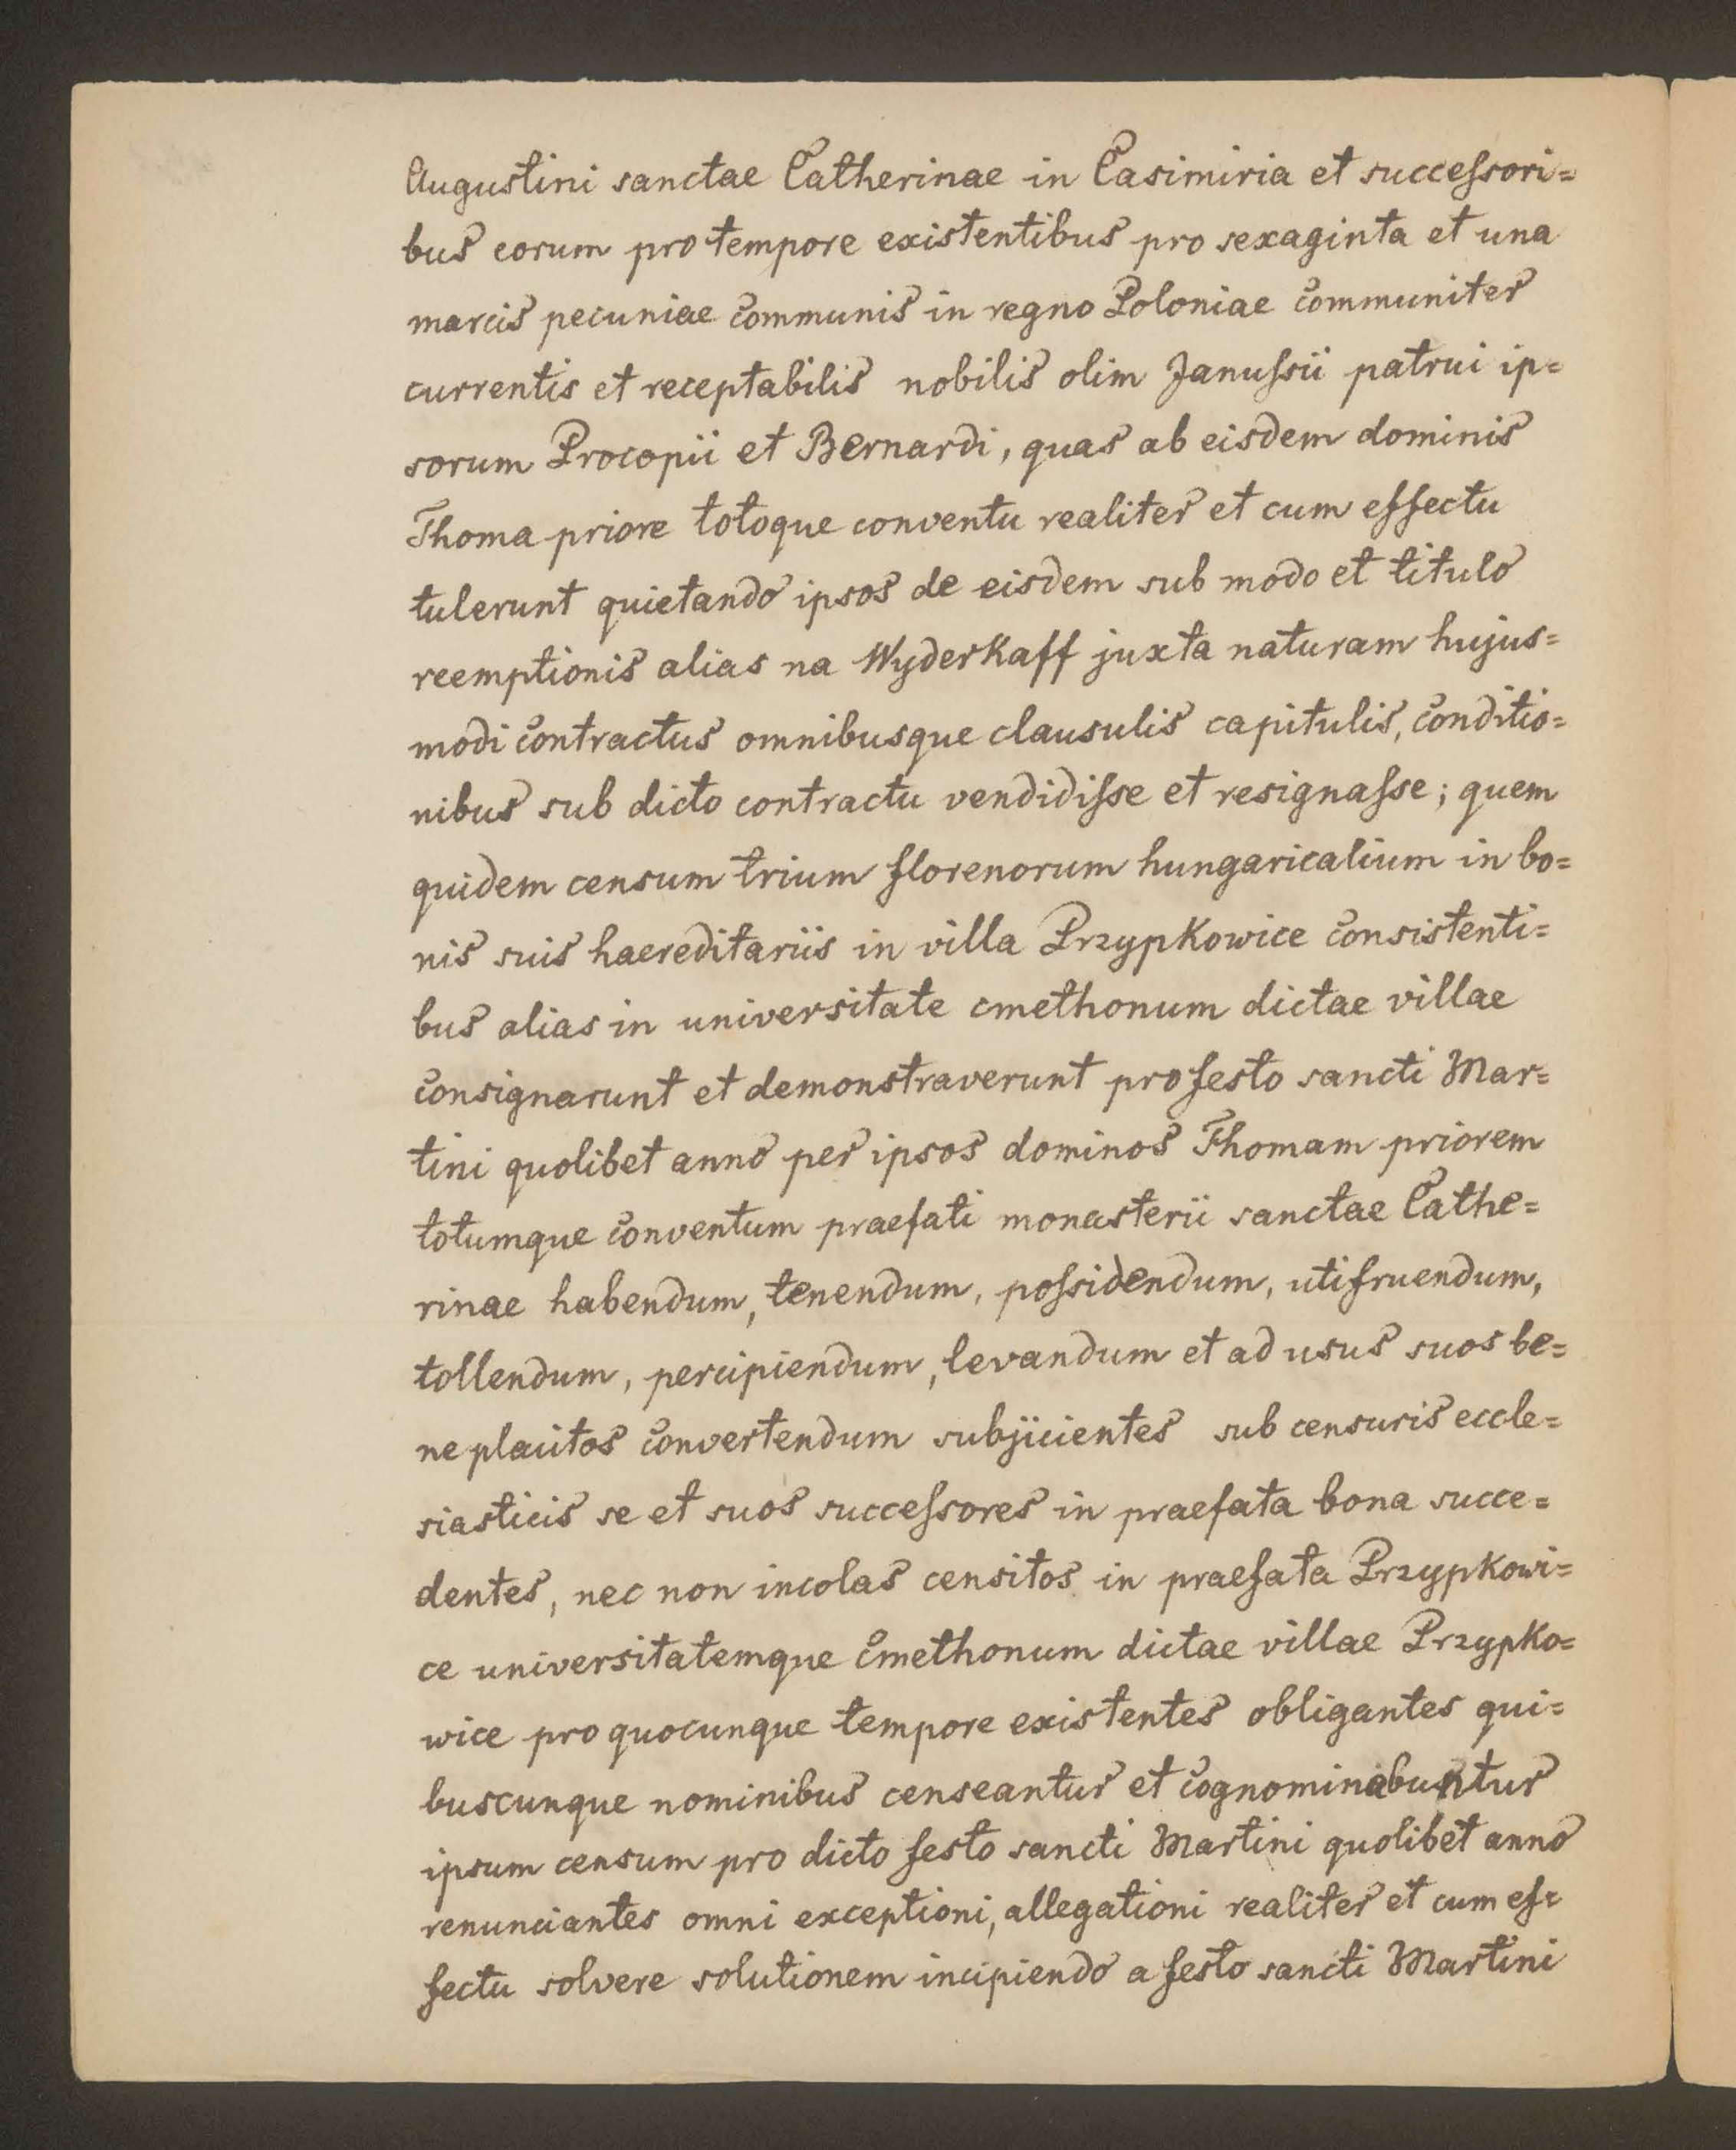 Augustini sanctae Catherinae in Casimiria et successori=
bus eorum pro tempore existentibus pro sexaginta et una
marcis pecuniae communis in regno Poloniae communiter
currentis et receptabilis nobilis olim Janussii patrui ip=
sorum Procopii et Bernardi, quas ab eisdem dominis
Thoma priore totoque conventu realiter et cum effectu
tulerunt quietando ipsos de eisdem sub modo et titulo
reemptionis alias na Wyderkaff juxta naturam hujus=
modi contractus omnibusque clausulis capitulis, conditio=
nibus sub dicto contractu vendidisse et resignasse; quem
quidem censum trium florenorum hungaricalium in bo=
nis suis haereditariis in villa Przypkowice consistenti=
bus alias in universitate cmethonum dictae villae
consignarunt et demonstraverunt pro festo sancti Mar=
tini quolibet anno per ipsos dominos Thomam priorem
totumque conventum praefati monasterii sanctae Cathe=
rinae habendum, tenendum, possidendum, utifruendum,
tollendum, percipiendum, levandum et ad usus suos be=
neplacitos convertendum subjicientes sub censuris eccle=
siasticis se et suos successores in praefata bona succe=
dentes, nec non incolas censitos in praefata Przypkowi=
ce universitatemque cmethonum dictae villae Przypko=
wice pro quocunque tempore existentes obligantes qui=
buscunque nominibus censeantur et cognominabuntur
ipsum censum pro dicto festo sancti Martini quolibet anno
renunciantes omni exceptioni, allegationi realiter et cum ef=
fectu solvere solutionem incipiendo a festo sancti Martini